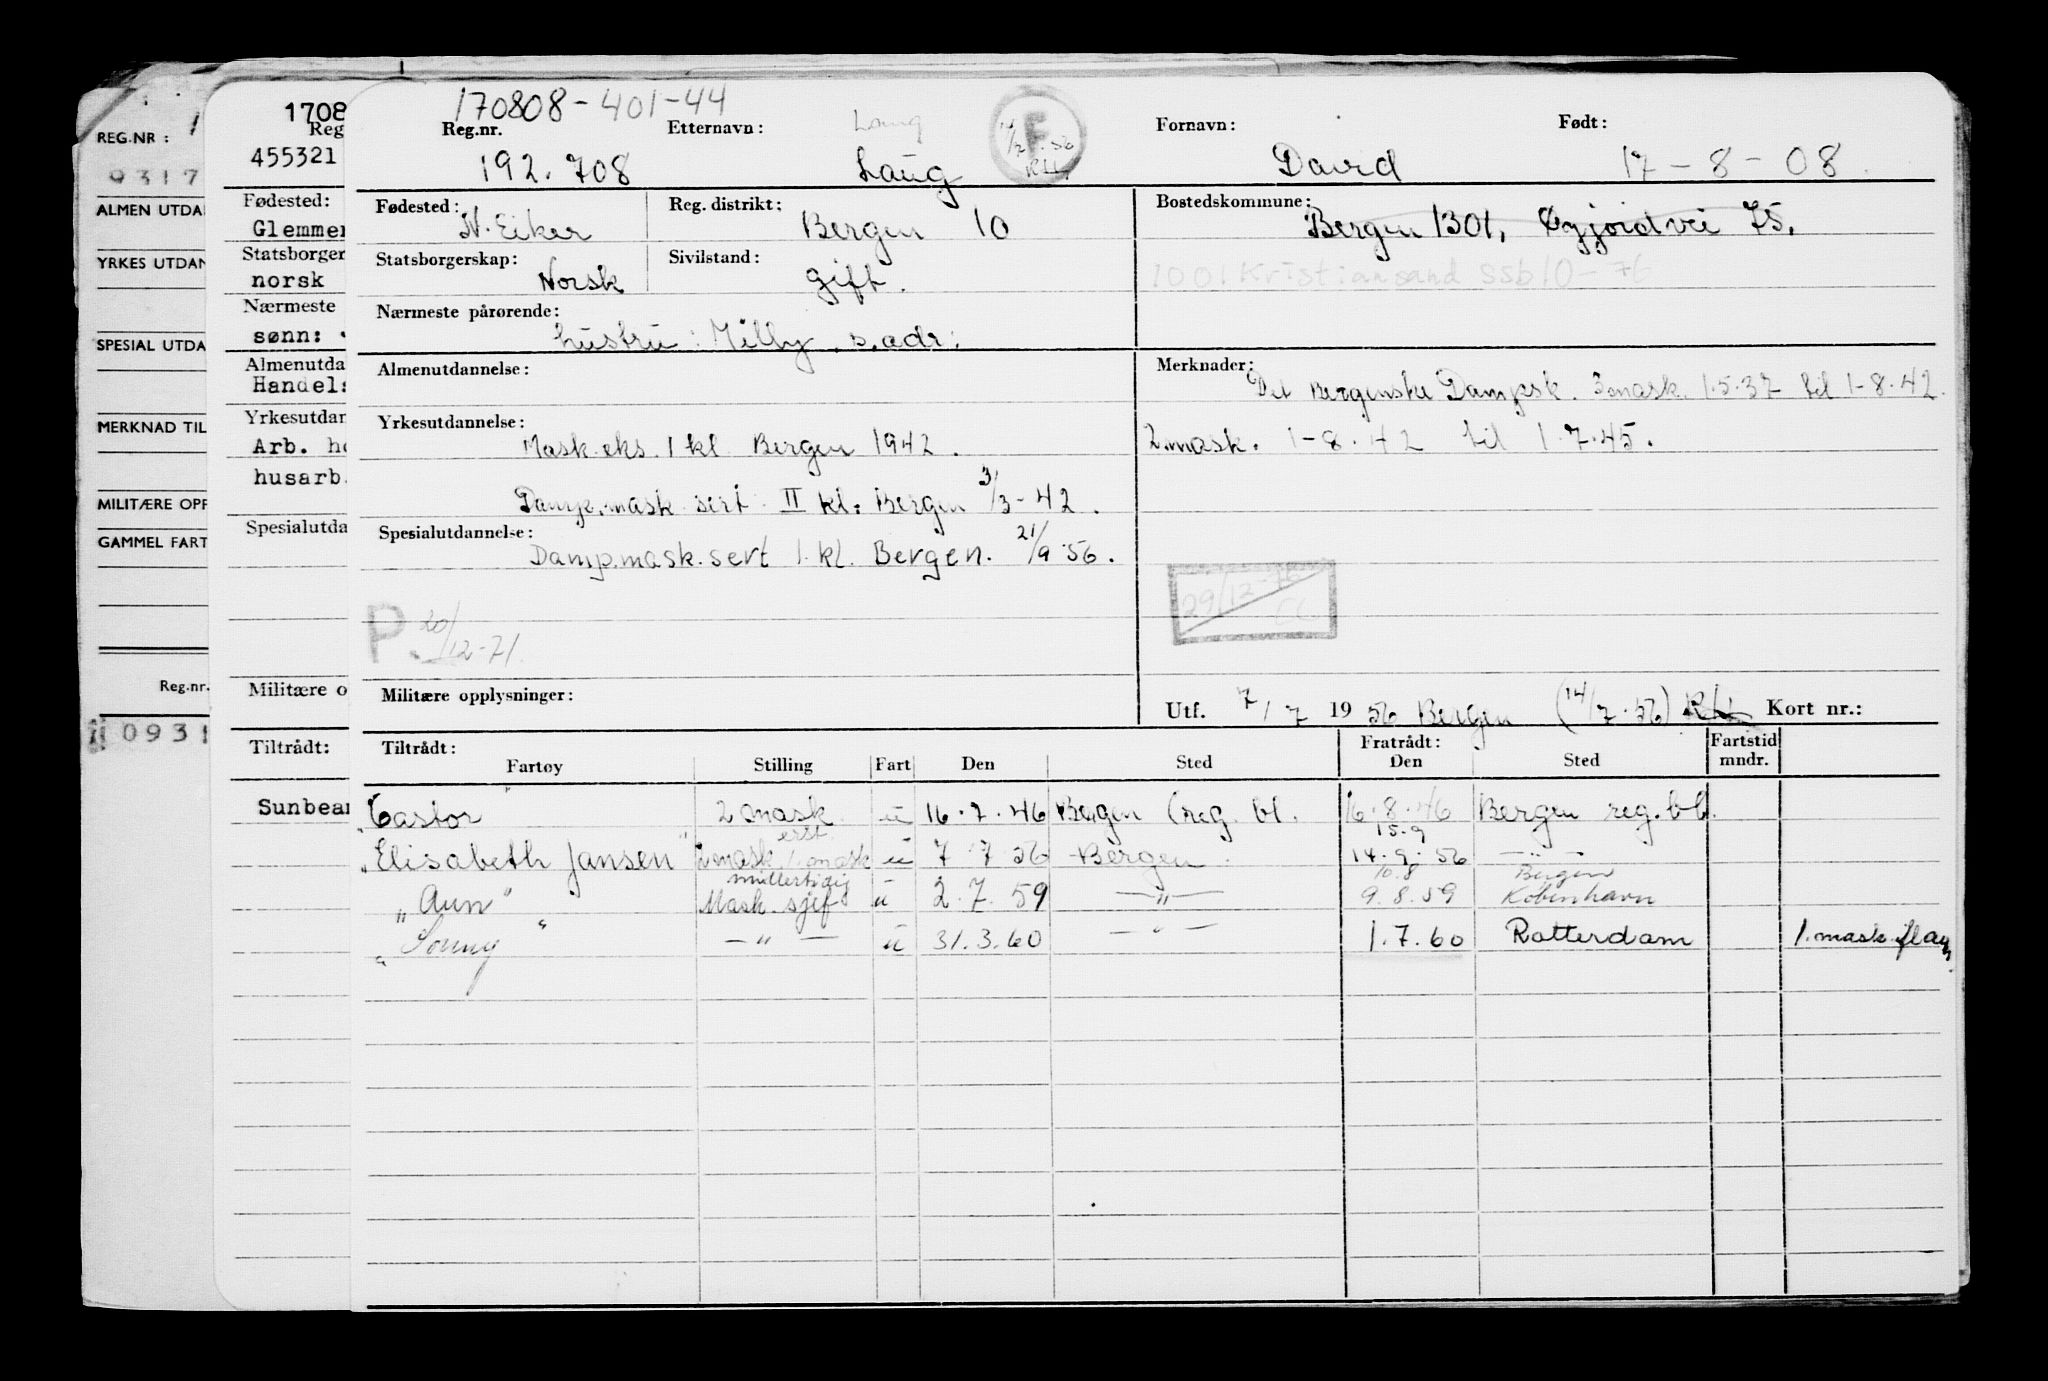 REG.NR : 1
0317
ALMEN UTDA
YRKES UTDAN
SPESIAL UTDA
MERKNAD TIL
MILITÆRE OPP
GAMMEL FART
Reg.nr.
0931
1708
Reg
455321
Fødested:
Glemmen
Statsborger
norsk
Nærmeste
sønn:
Almenutda
Handels
Yrkesutdan
Arb. ho
husarb.
Spesialutda
Militære o
Tiltrådt:
Sunbeam
170808-401-44
Reg.nr. Etternavn: Laug Fornavn: Født:
192.708 Laug David 17-8-08.
F
RH.
Fødested: N. Eiker Reg. distrikt: Bergen 10 Bostedskommune: Bergen 1301, 75.
Statsborgerskap: Norsk Sivilstand: gift. 1001 Kristiansand ssb 10-76
Nærmeste pårørende: hustru: Milly s.adr.
Almenutdannelse: Merknader: Det Bergenske Dampsk. 3mask. 1.5.37 til 1-8.42.
Yrkesutdannelse: 2.mask. 1-8.42 til 1.7.45.
Mask.eks. 1 kl. Bergen 1942.
Damp.mask sert. II kl. Bergen 3/3-42.
Spesialutdannelse: Dampmask.sert 1. kl. Bergen. 21/9 56.
P. 20/12-71.
29/12-76
Militære opplysninger: Utf. 7/7 1956 Bergen (14/7.56) RH Kort nr.:
Tiltrådt: Fratrådt: Fartstid
Fartøy Stilling Fart Den Sted Den Sted mndr.
"Castor" 2 mask. u 16.7.46 Bergen (reg. bl. 16.8.46 Bergen reg.bl.
15.9
"Elisabeth Jansen" 2mask 1.mask u 7.7.56 Bergen. 14.9.56 —"—
midlertidig 10.8 Bergen
"Aun" Mask.sjef u 2.7.59 —"— 9.8.59 København
"Sonny" —"— u 31.3.60 —"— 1.7.60 Rotterdam 1.mask.